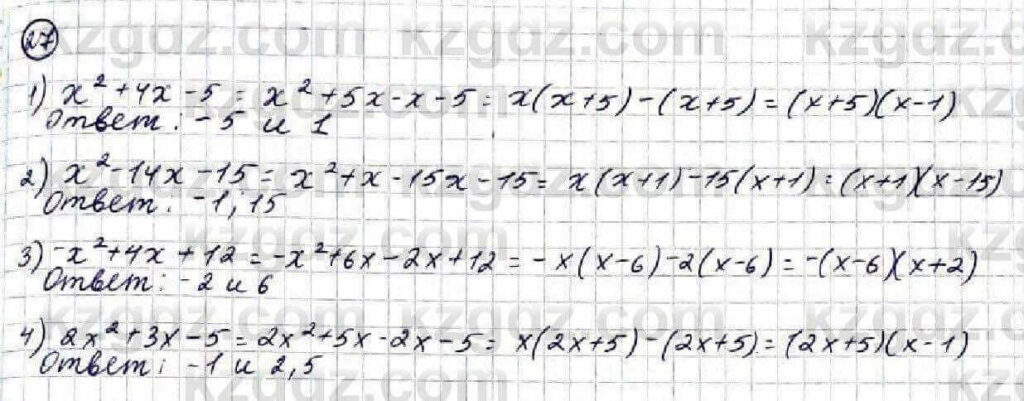 27
1) x² + 4x - 5 = x² + 5x - x - 5 = x(x+5) - (x+5) = (x+5)(x-1)
Ответ: -5 и 1
2) x² - 14x - 15 = x² + x - 15x - 15 = x(x+1) - 15(x+1) = (x+1)(x-15)
Ответ: -1; 15
3) -x² + 4x + 12 = -x² + 6x - 2x + 12 = -x(x-6) - 2(x-6) = -(x-6)(x+2)
Ответ: -2 и 6
4) 2x² + 3x - 5 = 2x² + 5x - 2x - 5 = x(2x+5) - (2x+5) = (2x+5)(x-1)
Ответ: -1 и 2,5
kzgdz.com